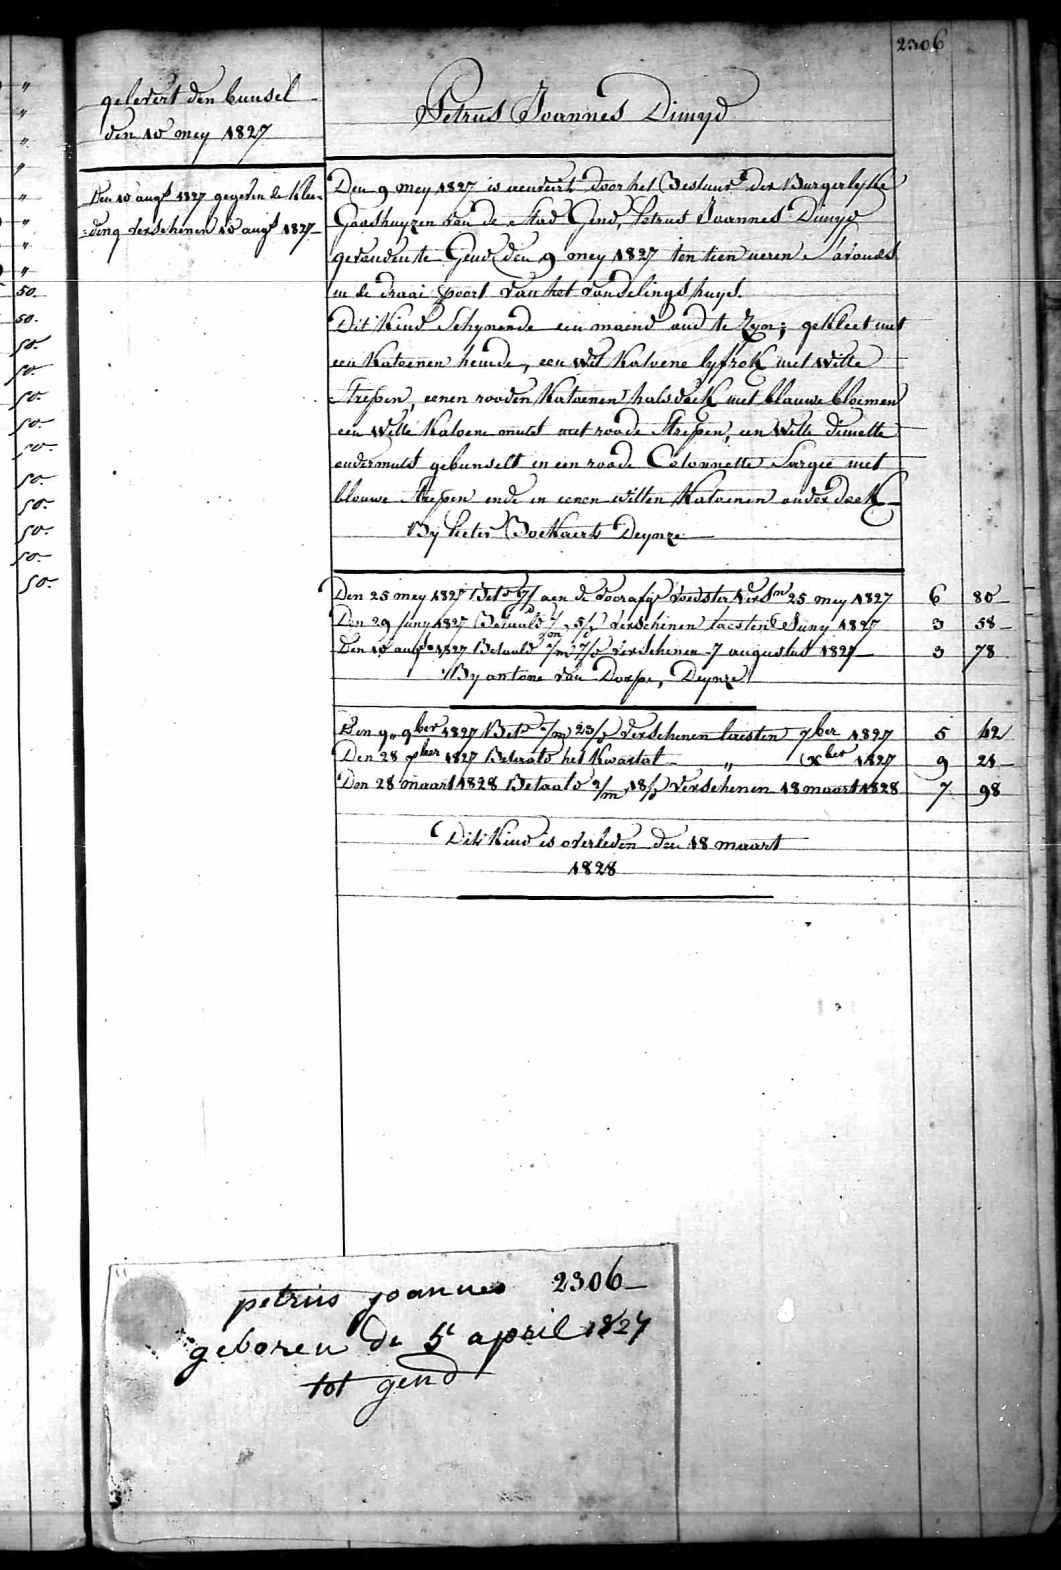 2306
gelevert den bunsel
den 10 mey 1827
Petrus Joannes Dimyd
Den 10 augt 1827 gegeven de Klee=
=ding verschenen 10 augt 1827
Den 9 mey 1827 is door het Bestuur der Burgerlyke
Godshuyzen van de Stad Gend, Petrus Joannes Dimyd
gevonden te Gend den 9 mey 1827 ten tien ueren S'avonds
in de draai poort van het vondelingshuys.
Dit Kind Schynende een maend oud te Zyn; gekleet met
een Katoenen hemde, een wit Katoene lyfrok met witte
strepen, eenen rooden Katoenen halsdoek met blauwe bloemen
een witte Katoene muts met roode Strepen, een witte dimitte
ondermuts gebunselt in een roode Cotonnette Sargie met
blouwe strepen ende in eenen witten Katoenen onder doek
By Pieter Boekaert Deynze
Den 25 mey 1827 aen de voedster 25 mey 1827 6 80
Den 29 Juny 1827 Betaald verschenen laesten Juny 1827 3 58
Den 10 augt 1827 Betaald verschenen 7 augustus 1827 3 78
By antone van Dorpe, Deynze
Den 9 9ber 1827 Bet 23/ verschenen laesten 7ber 1827 5 42
Den 28 xber 1827 Betaald het Kwartal " xber 1827 9 21
Den 28 maart 1828 Betaald 2/m 18/ verschenen 18 maart 1828 7 98
Dit Kind is overleden den 18 maart
1828
50.
50.
50.
50.
50.
50.
50.
50.
50.
50.
50.
50.
petrus joannes 2306
geboren de 5 april 1827
tot gend